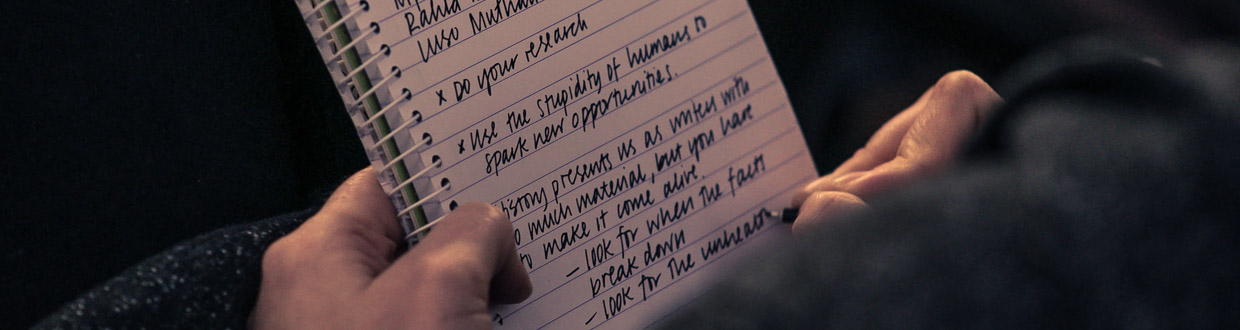 Rahla
Luso Muthaa
x Do your research
x Use the stupidity of humans to
spark new opportunities.
history presents us as writers with
so much material, but you have
to make it come alive.
- look for when the facts
break down
- look for the unheato